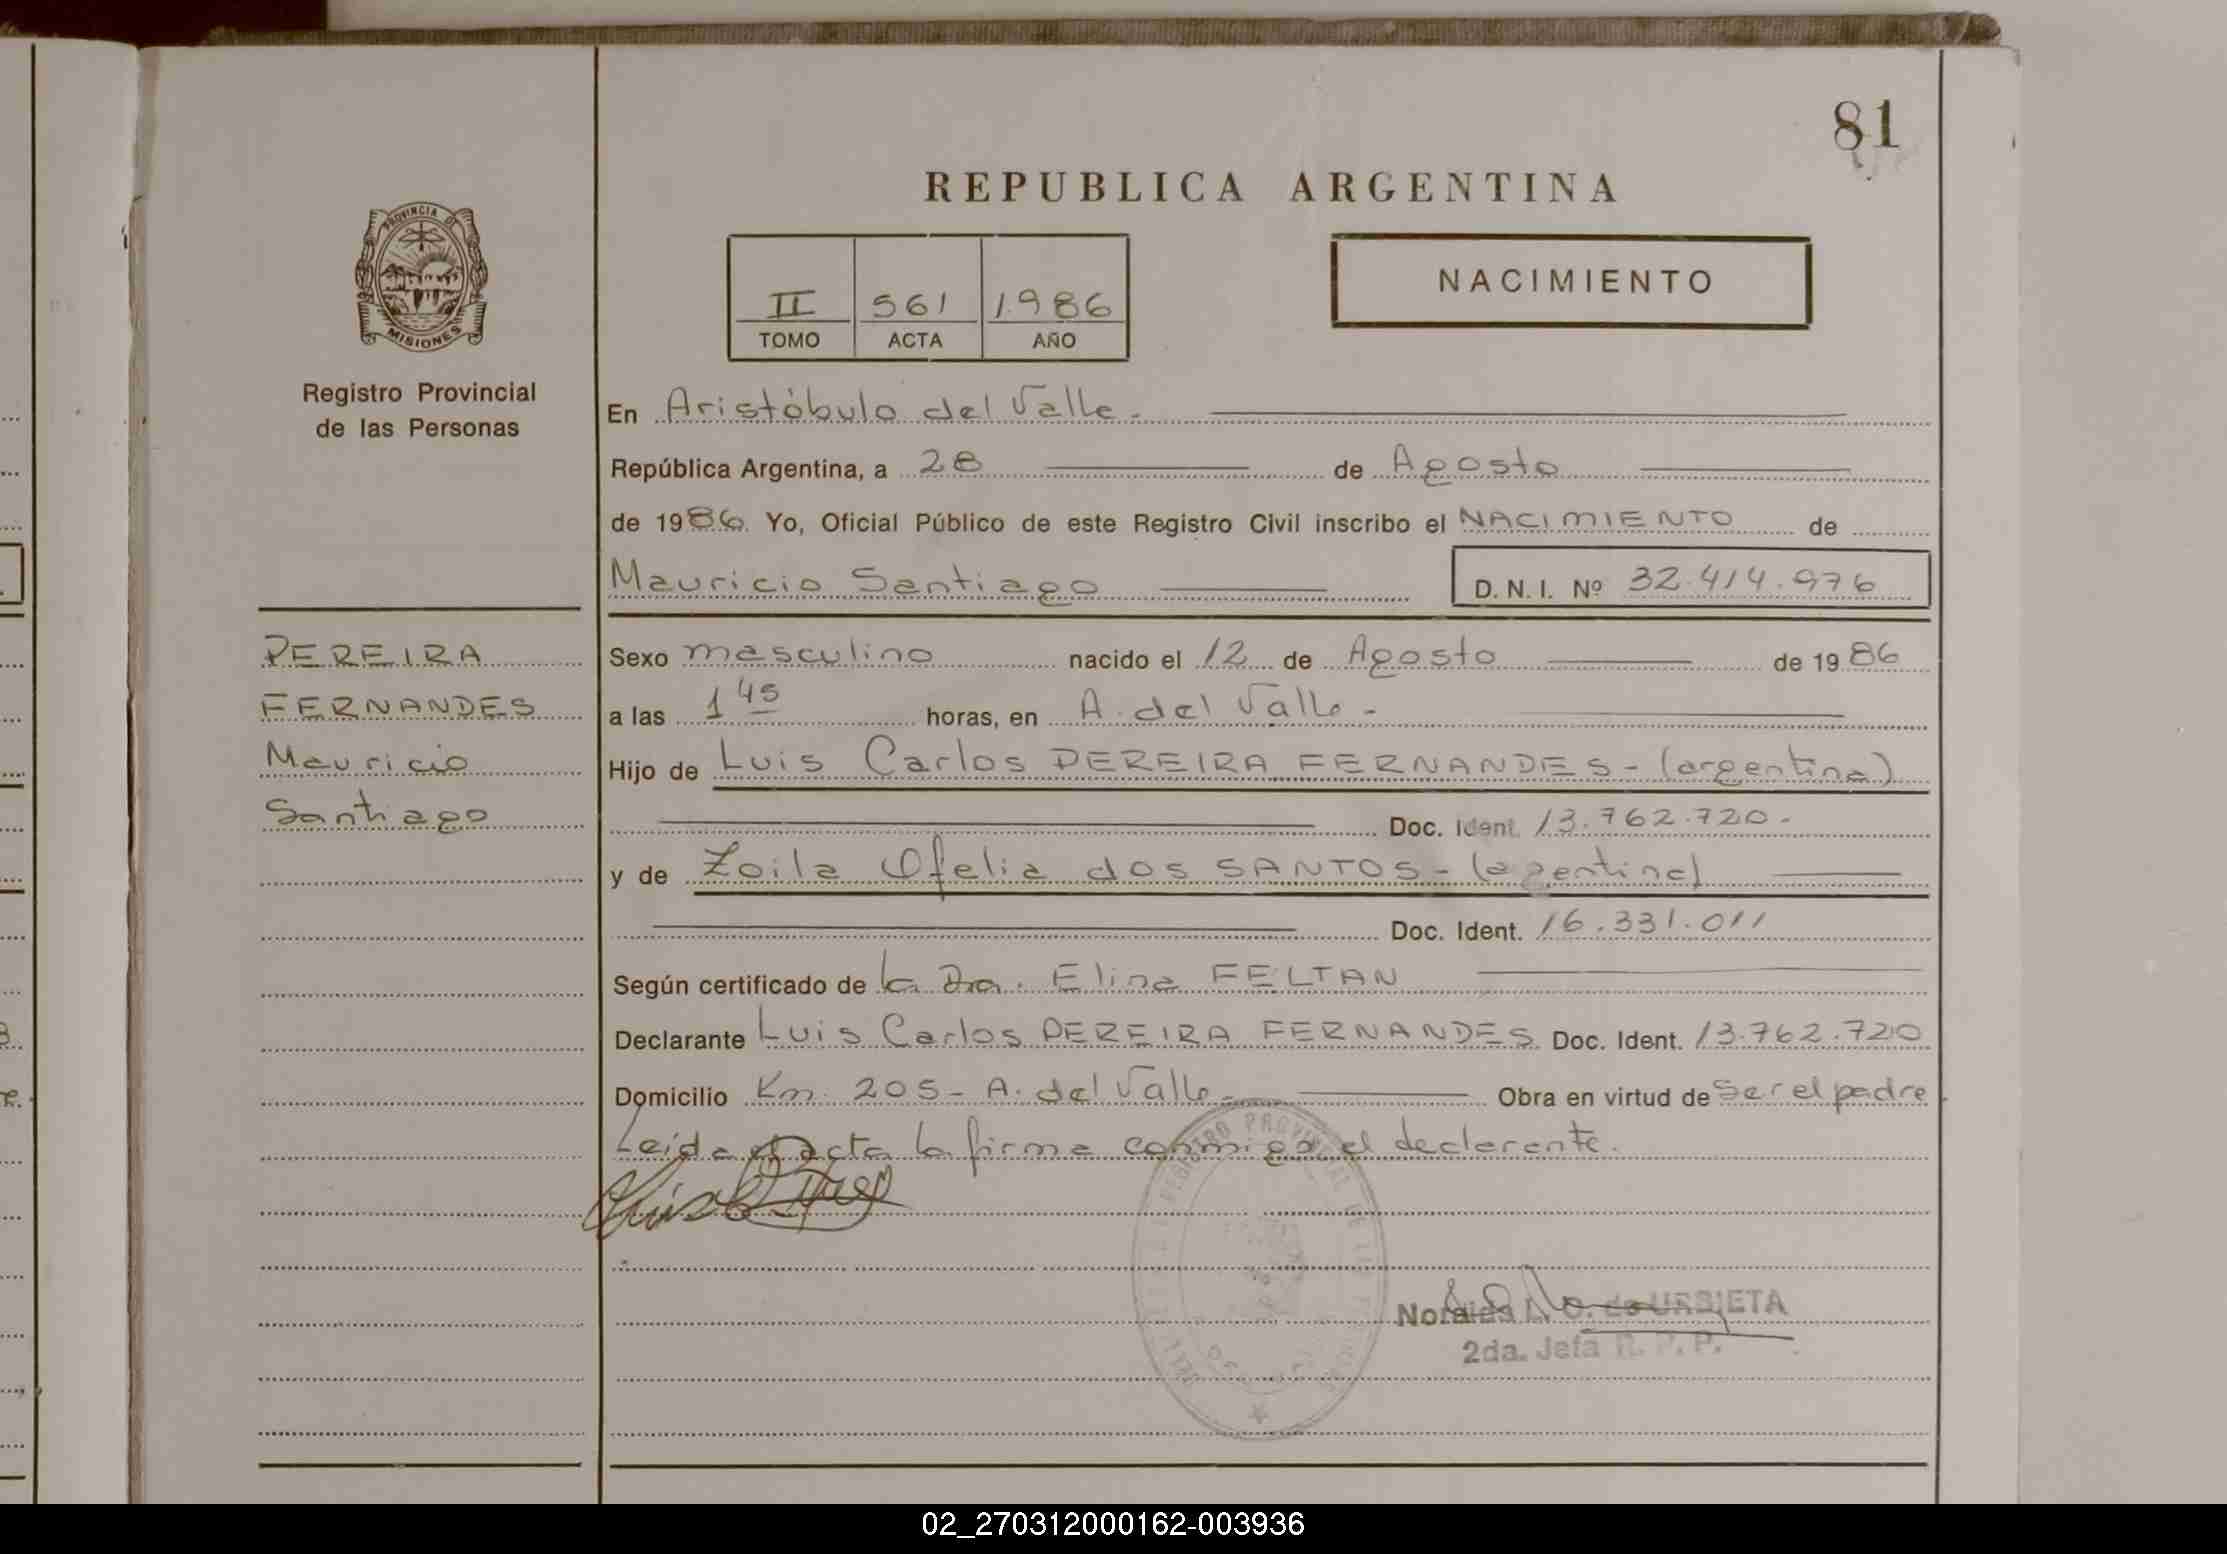 81
REPUBLICA ARGENTINA
PROVINCIA DE
MISIONES
Registro Provincial
de las Personas
II 561 1.986
TOMO ACTA AÑO
NACIMIENTO
En Aristóbulo del Valle.-
República Argentina, a 28 de Agosto
de 1986. Yo, Oficial Público de este Registro Civil inscribo el NACIMIENTO de
Mauricio Santiago D. N. I. Nº 32.414.976
PEREIRA
FERNANDES
Mauricio
Santiago
Sexo masculino nacido el 12 de Agosto de 1986
a las 1 45 horas, en A. del Valle -
Hijo de Luis Carlos PEREIRA FERNANDES - (argentina)
Doc. Ident. 13.762.720.-
y de Zoila Ofelia dos SANTOS - (argentina)
Doc. Ident. 16.331.011
Según certificado de la Dra. Elina FELTAN
Declarante Luis Carlos PEREIRA FERNANDES Doc. Ident. 13.762.720
Domicilio Km. 205 - A. del Valle - Obra en virtud de ser el padre
Leida el acta la firma conmigo el declarante.
REGISTRO PROVINCIAL DE LAS
de URBIETA
2da. Jefa R. P. P.
02_270312000162-003936